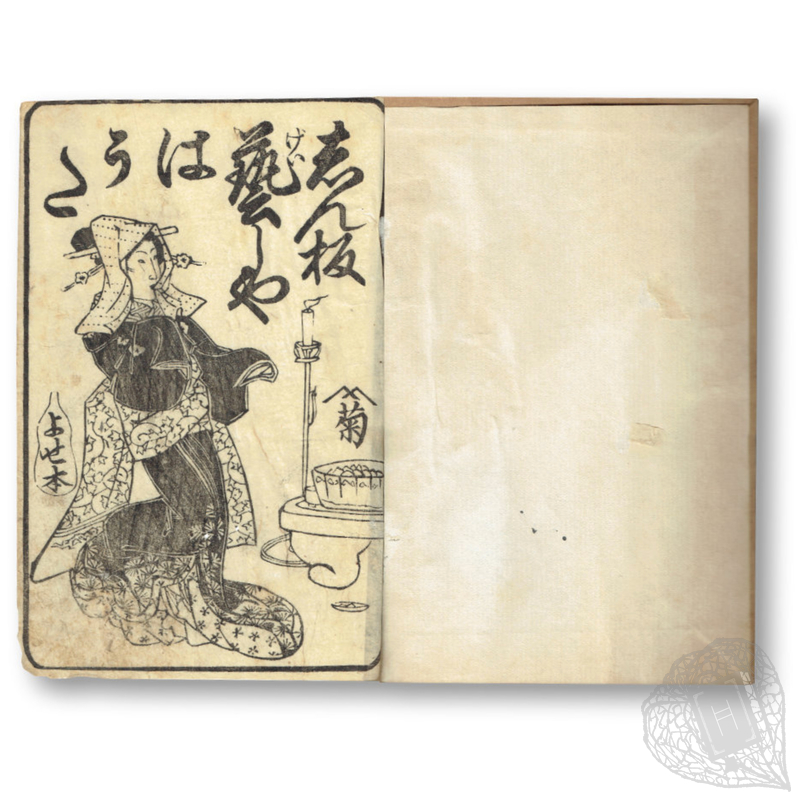 志ん板
げい
藝しや
はうた
菊
よせ本
H